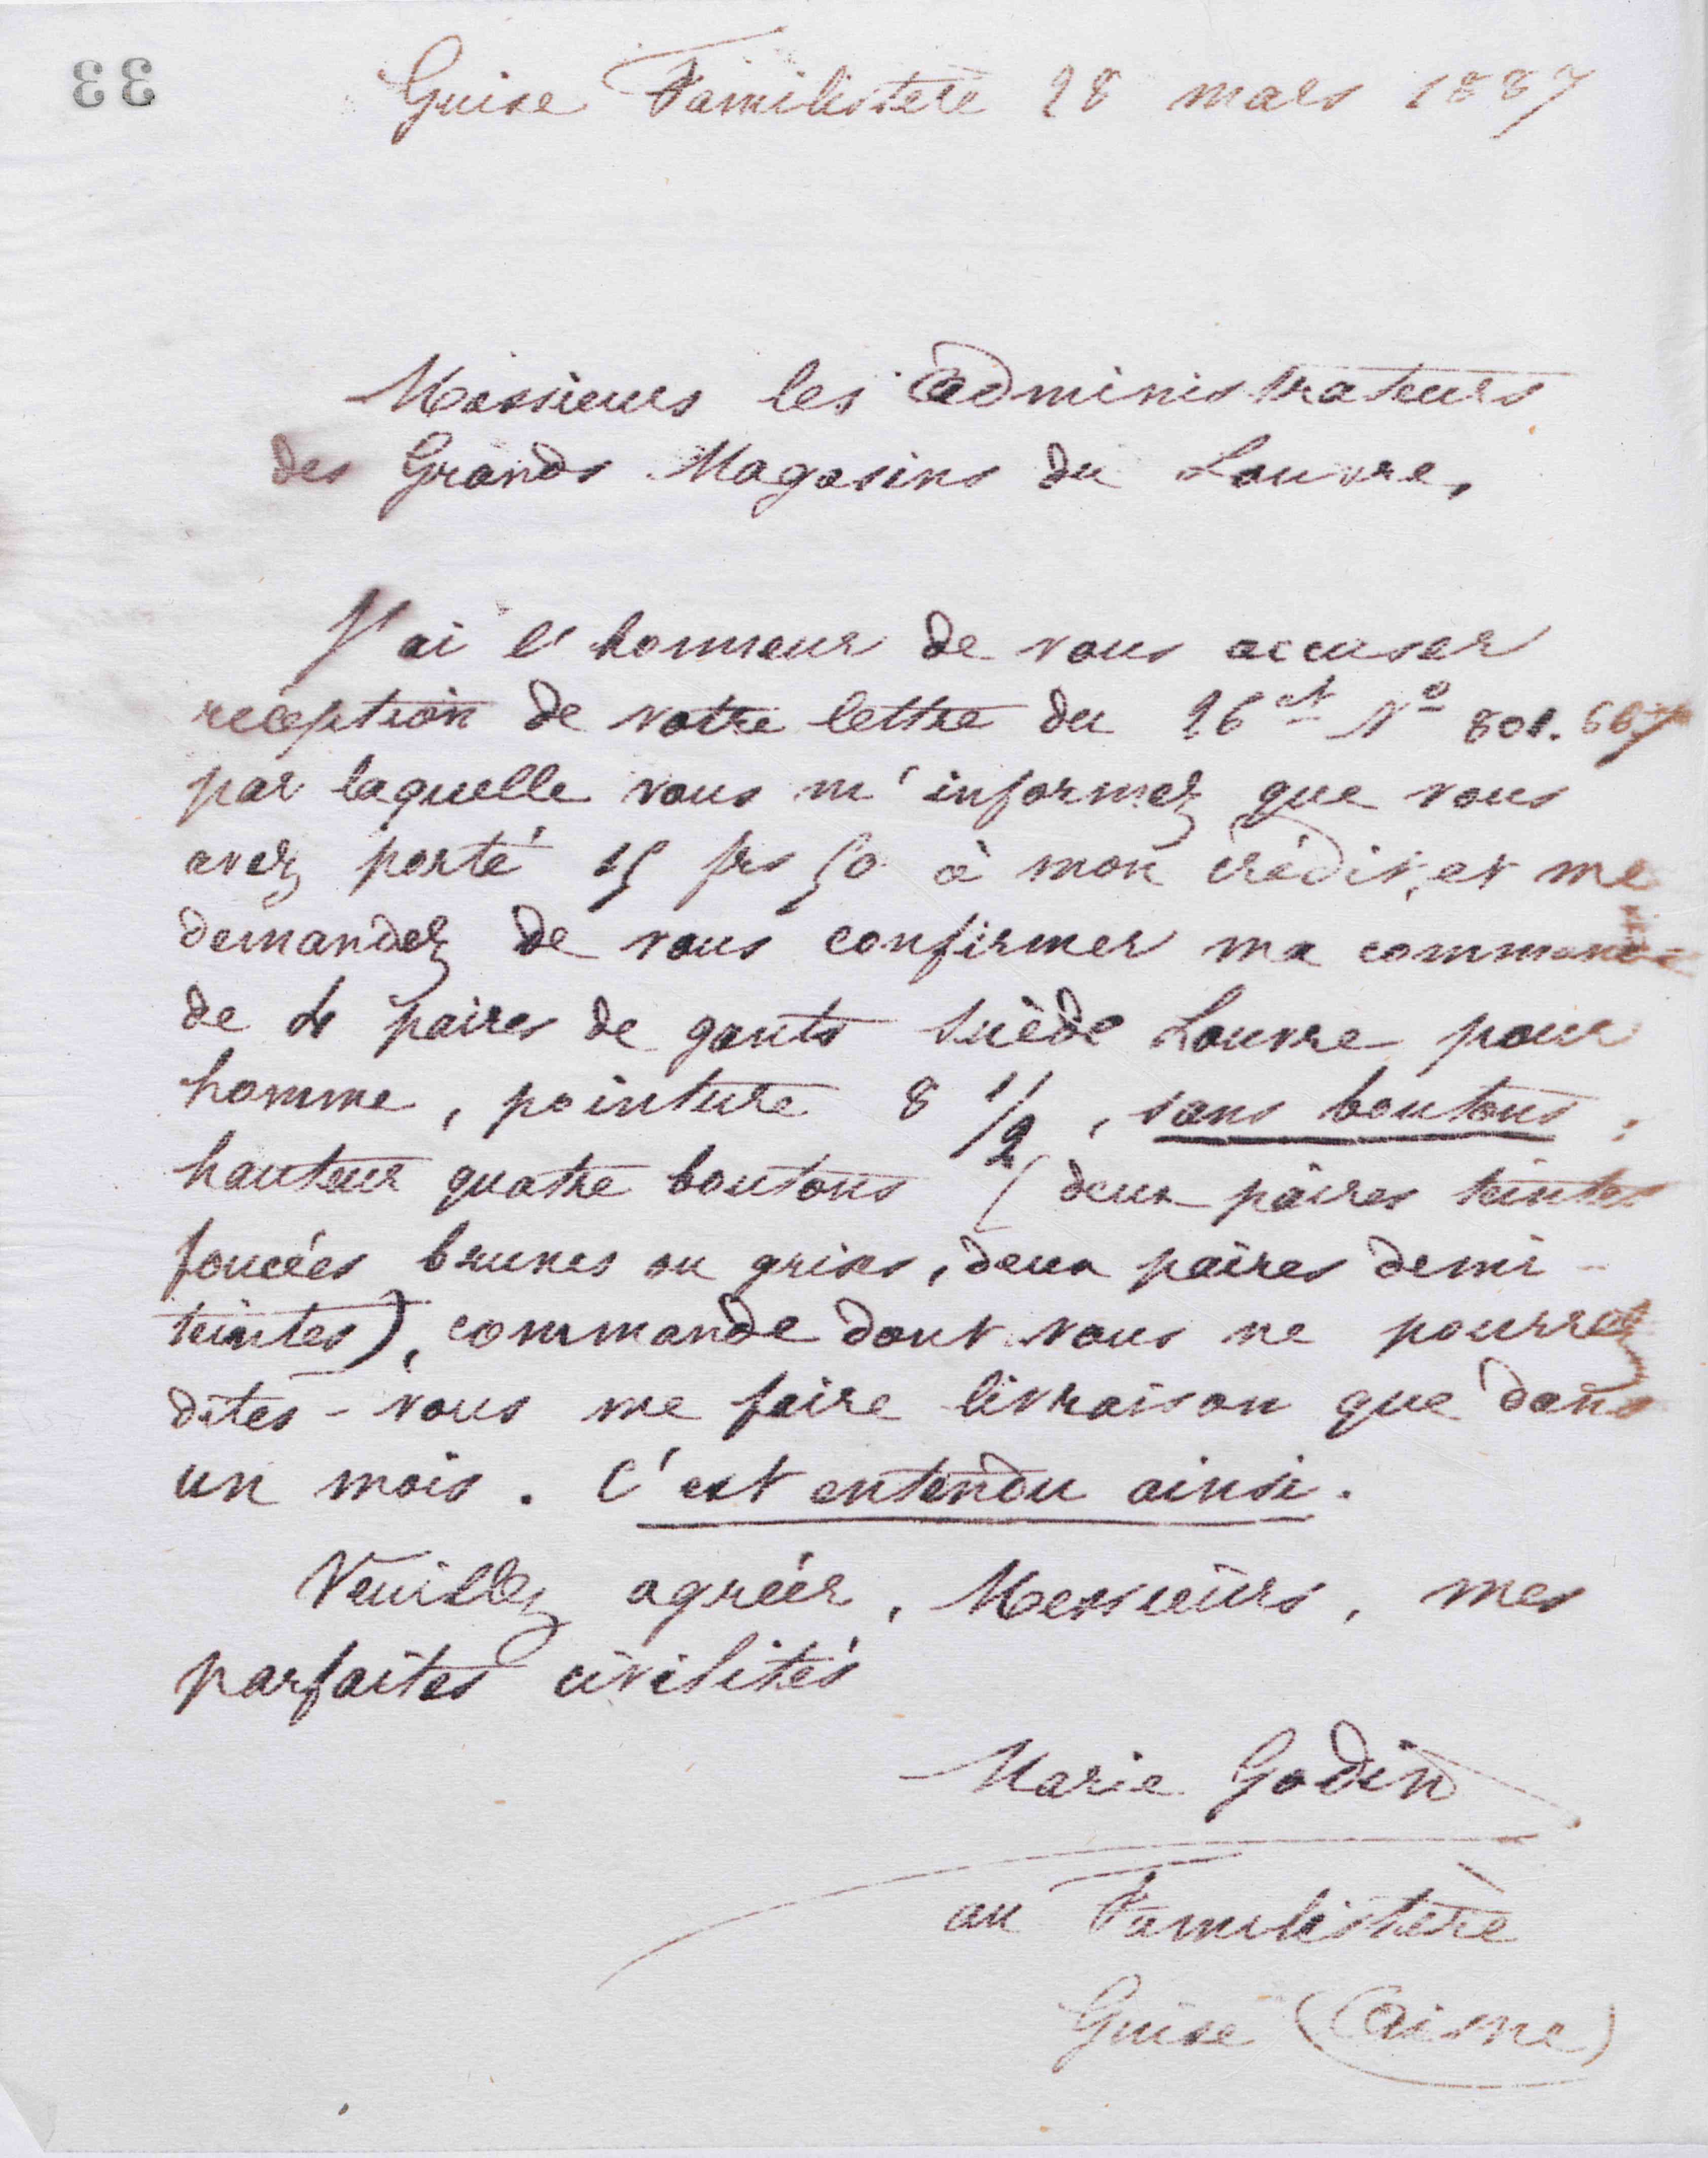 33
Guise Familistère 28 mars 1887
Messieurs les administrateurs
des Grands Magasins du Louvre,
J'ai l'honneur de vous accuser
réception de votre lettre du 26 ct N° 801.667
par laquelle vous m'informez que vous
avez porté 15 frs 50 à mon crédit, et me
demandez de vous confirmer ma commande
de 4 paires de gants Suède Louvre pour
homme, pointure 8 1/2, sans boutons,
hauteur quatre boutons (deux paires teintes
foncées brunes ou grises, deux paires demi-
teintes), commande dont vous ne pourrez
dites-vous me faire livraison que dans
un mois. C'est entendu ainsi.
Veuillez agréer, Messieurs, mes
parfaites civilités
Marie Godin
au Familistère
Guise (Aisne)